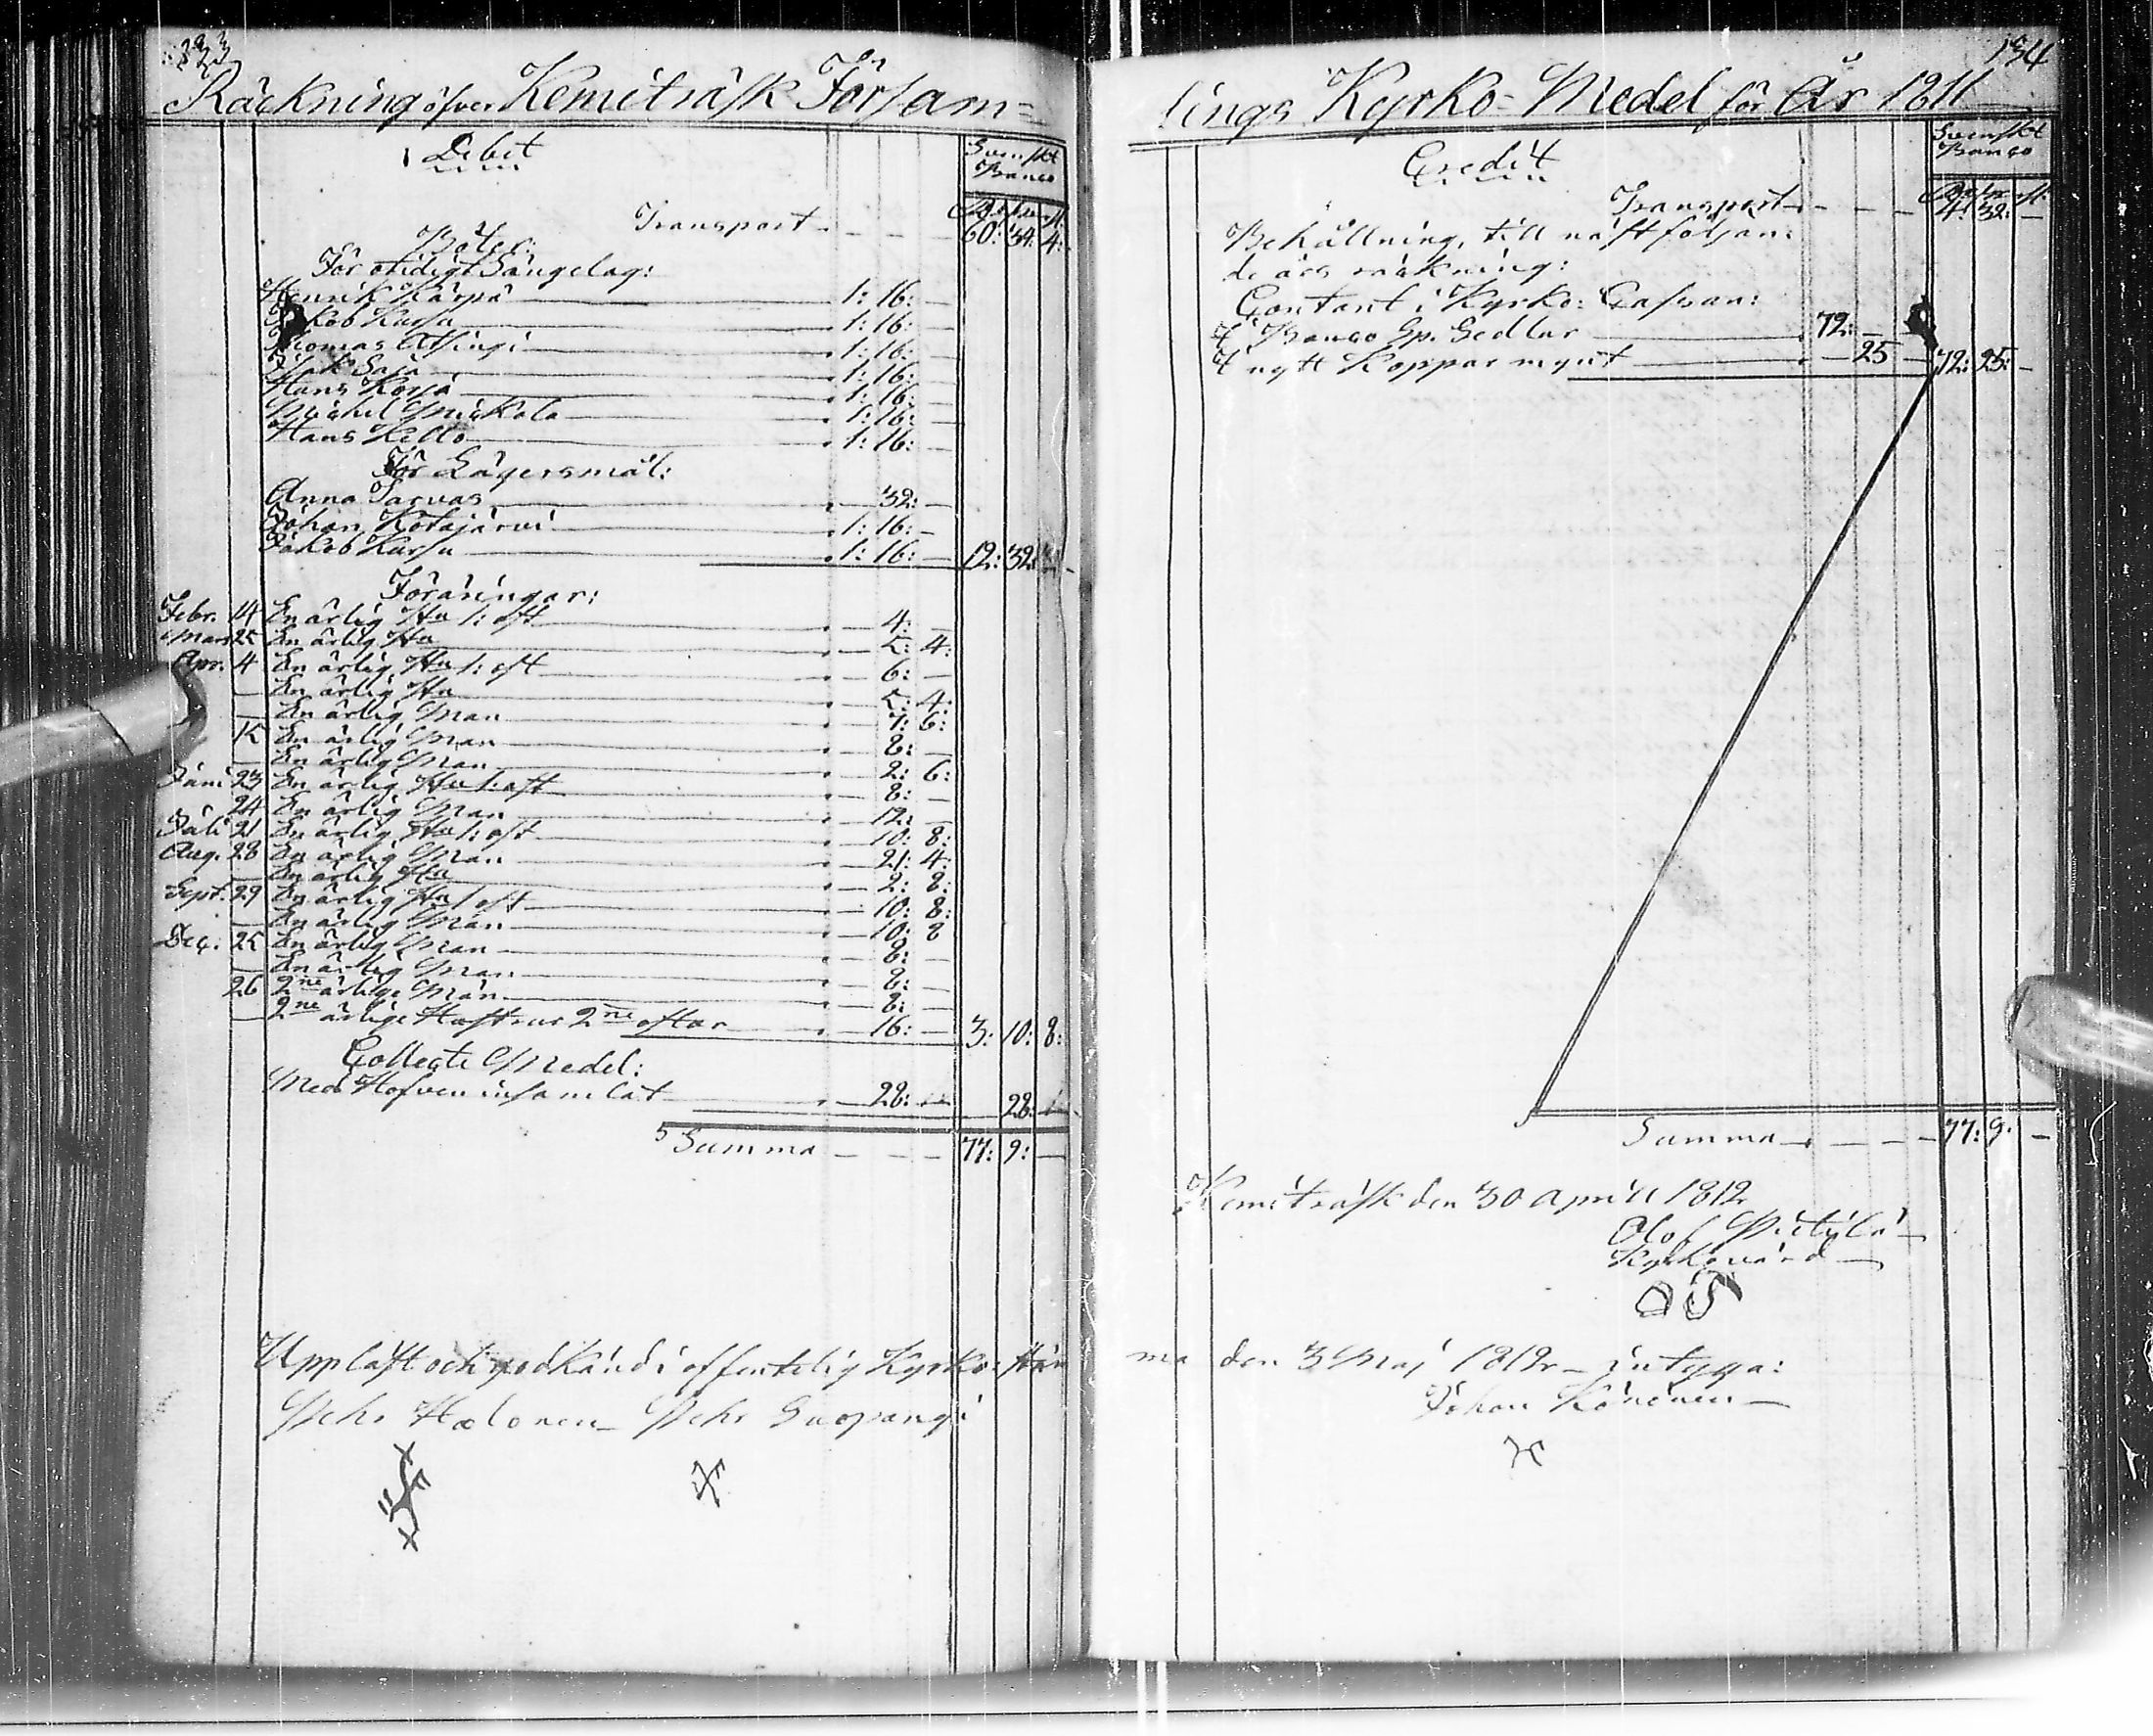 Räckning öfver Kemiträsk Församl=
Debet
Svenskt
Banco
Transport 60: 34: 4:
Böter:
För otidigt Sängelag:
Henrik Kärpä 1: 16: —
Jakob Kursu 1: 16: —
Thomas 1: 16: —
Isak Saja 1: 16: —
Hans 1: 16: —
Michel Mickola 1: 16: —
Hans Kello 1: 16: —
För Lägersmål:
Anna Sarvas — 32: —
Johan Kotajärvi 1: 16: —
Jakob Kursu 1: 16: — 12: 32:
Föräningar:
Febr. 14 En ärlig Hu 1: oft — 4: —
Mars 25 En ärlig Hu — 5: 4:
Apr. 4 En ärlig Hu 1: oft — 6: —
— En ärlig Hu — 5: 4:
— En ärlig Man — 7: 6:
15 En ärlig Man — 8: —
— En ärlig Man — 2: 6:
Juni 23 En ärlig Hu 1: oft — 8: —
24 En ärlig Man — 12: —
Juli 21 En ärlig Hu 1: oft — 10: 8:
Aug. 28 En ärlig Man — 21: 4:
— En ärlig Hu — 2: 8:
Sept. 29 En ärlig Hu 1 oft — 10: 8:
— En ärlig Man — 10: 8
Dec. 25 En ärlig Man — 8: —
— En ärlig Man — 8: —
26 2ne ärlige Män — 8: —
— 2ne ärlige Hustrur 2ne oftor — 16: — 3: 10: 8:
Collecte Medel:
Med Hofven insamlat — 28: 28:
Summa 77: 9: —
Uppläst och godkänd i offentelig Kyrko: stäm
Pehr Halonen Pehr Suopangi
134
lings Kyrko= Medel för År 1811
Credit
Svenskt
Banco
Transport 4: 32: —
Behållning, till nästföljan:
de års räkning:
Contant i Kyrko: Cassan:
I Banco Sp. Sedlar 72: —
I nytt Koppar mynt — 25 — 72: 25: —
Summa 77: 9: —
Kemiträsk den 30 April 1812
Olof Pietilä
Kyrkovärd
ma den 3 Maj 1812 intyga:
Johan Könönen